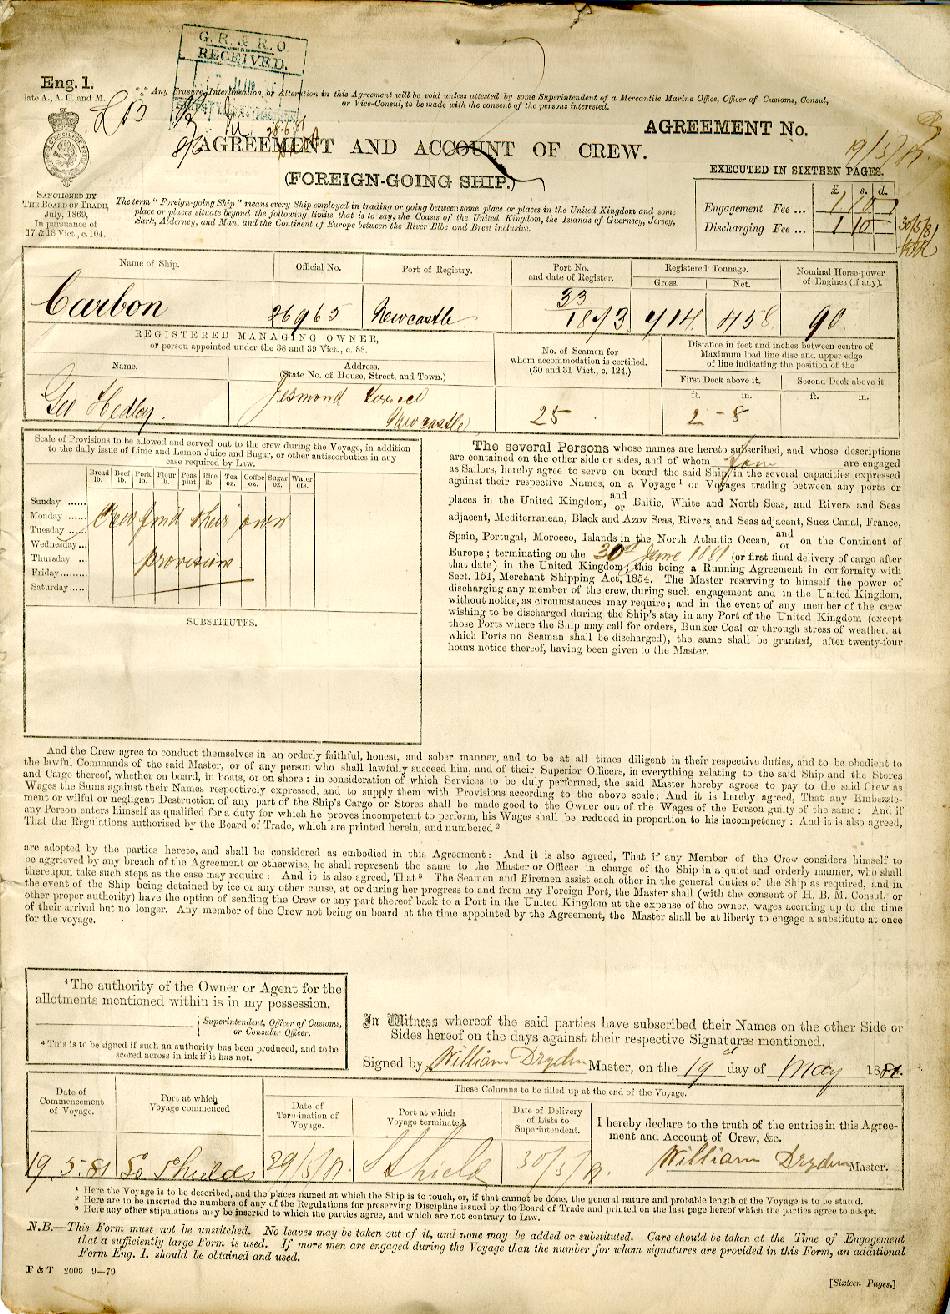 G. R. & R. O
RECEIVED.
Eng. 1.
late A., A. C. and M.
*** Any Erasure, Interlineation, or Alteration in this Agreement will be void unless attested by some Superintendent of a Mercantile Marine Office, Officer of Customs, Consul,
or Vice-Consul, to be made with the consent of the persons interested.
AGREEMENT No.
AGREEMENT AND ACCOUNT OF CREW.
(FOREIGN-GOING SHIP.)
SANCTIONED BY
THE BOARD OF TRADE,
July, 1869,
In pursuance of
17 & 18 Vict., c. 104.
The term "Foreign-going Ship" means every Ship employed in trading or going between some place or places in the United Kingdom and some
place or places situate beyond the following limits that is to say, the Coasts of the United Kingdom, the Islands of Guernsey, Jersey,
Sark, Alderney, and Man, and the Continent of Europe between the River Elbe and Brest inclusive.
EXECUTED IN SIXTEEN PAGES.
£ s. d.
Engagement Fee ... 1 10
Discharging Fee ... 1 10
Name of Ship.
Official No.
Port of Registry.
Port No.
and date of Register.
Registered Tonnage.
Gross.
Net.
Nominal Horse-power
of Engines (if any).
Carbon
26965
Newcastle
33
1873
714
458
90
REGISTERED MANAGING OWNER,
or person appointed under the 38 and 39 Vict., c. 88.
Name.
Address.
(State No. of House, Street, and Town.)
No. of Seamen for
whom accommodation is certified.
(30 and 31 Vict., c. 124.)
Distance in feet and inches between centre of
Maximum load line disc and upper edge
of line indicating the position of the
First Deck above it.
Second Deck above it
ft. in. ft. in.
Geo Hedley
Jesmond
Newcastle
25
2 - 8
Scale of Provisions to be allowed and served out to the crew during the Voyage, in addition
to the daily issue of Lime and Lemon Juice and Sugar, or other antiscorbutics in any
case required by Law.
Bread lb. Beef lb. Pork lb. Flour lb. Peas pint Rice lb. Tea oz. Coffee oz. Sugar oz. Water qts.
Sunday
Monday
Tuesday
Wednesday
Thursday
Friday
Saturday
Crew find their own
provision
SUBSTITUTES.
The several Persons whose names are hereto subscribed, and whose descriptions
are contained on the other side or sides, and of whom are engaged
as Sailors, hereby agree to serve on board the said Ship, in the several capacities expressed
against their respective Names, on a Voyage¹ or Voyages trading between any ports or
places in the United Kingdom, and or Baltic, White and North Seas, and Rivers and Seas
adjacent, Mediterranean, Black and Azov Seas, Rivers and Seas adjacent, Suez Canal, France,
Spain, Portugal, Morocco, Islands in the North Atlantic Ocean, and or on the Continent of
Europe; terminating on the 30th June 1881 (or first final delivery of cargo after
that date) in the United Kingdom; this being a Running Agreement in conformity with
Sect. 151, Merchant Shipping Act, 1854. The Master reserving to himself the power of
discharging any member of the crew, during such engagement and in the United Kingdom,
without notice, as circumstances may require; and in the event of any member of the crew
wishing to be discharged during the Ship's stay in any Port of the United Kingdom (except
those Ports where the Ship may call for orders, Bunker Coal or through stress of weather, at
which Ports no Seaman shall be discharged), the same shall be granted, after twenty-four
hours notice thereof, having been given to the Master.
And the Crew agree to conduct themselves in an orderly faithful, honest, and sober manner, and to be at all times diligent in their respective duties, and to be obedient to
the lawful Commands of the said Master, or of any person who shall lawfully succeed him, and of their Superior Officers, in everything relating to the said Ship and the Stores
and Cargo thereof, whether on board, in boats, or on shore: in consideration of which Services to be duly performed, the said Master hereby agrees to pay to the said Crew as
Wages the Sums against their Names respectively expressed, and to supply them with Provisions according to the above scale: And it is hereby agreed, That any Embezzle-
ment or wilful or negligent Destruction of any part of the Ship's Cargo or Stores shall be made good to the Owner out of the Wages of the Person guilty of the same: And if
any Person enters himself as qualified for a duty for which he proves incompetent to perform, his Wages shall be reduced in proportion to his incompetency: And it is also agreed,
That the Regulations authorised by the Board of Trade, which are printed herein, and numbered ²
are adopted by the parties hereto, and shall be considered as embodied in this Agreement: And it is also agreed, That if any Member of the Crew considers himself to
be aggrieved by any breach of the Agreement or otherwise, he shall represent the same to the Master or Officer in charge of the Ship in a quiet and orderly manner, who shall
thereupon take such steps as the case may require: And it is also agreed, That ³ The Seamen and Firemen assist each other in the general duties of the Ship as required, and in
the event of the Ship being detained by ice or any other cause, at or during her progress to and from any Foreign Port, the Master shall (with the consent of H. B. M. Consul, or
other proper authority) have the option of sending the Crew or any part thereof back to a Port in the United Kingdom at the expense of the owner, wages accruing up to the time
of their arrival but no longer. Any member of the Crew not being on board at the time appointed by the Agreement, the Master shall be at liberty to engage a substitute at once
for the voyage.
⁴The authority of the Owner or Agent for the
allotments mentioned within is in my possession.
Superintendent, Officer of Customs,
or Consular Officer.
⁴ This is to be signed if such an authority has been produced, and to be
scored across in ink if it has not.
In Witness whereof the said parties have subscribed their Names on the other Side or
Sides hereof on the days against their respective Signatures mentioned.
Signed by William Dryden Master, on the 19 day of May 1881.
Date of
Commencement
of Voyage.
Port at which
Voyage commenced
These Columns to be filled up at the end of the Voyage.
Date of
Termination of
Voyage.
Port at which
Voyage terminated.
Date of Delivery
of Lists to
Superintendent.
I hereby declare to the truth of the entries in this Agree-
ment and Account of Crew, &c.
19 5 81
So Shields
29/5/81
S Shield
30/5/81
William Dryden Master.
¹ Here the Voyage is to be described, and the places named at which the Ship is to touch, or, if that cannot be done, the general nature and probable length of the Voyage is to be stated.
² Here are to be inserted the numbers of any of the Regulations for preserving Discipline issued by the Board of Trade and printed on the last page hereof which the parties agree to adopt.
³ Here any other stipulations may be inserted to which the parties agree, and which are not contrary to Law.
N.B.—This Form must not be unstitched. No leaves may be taken out of it, and none may be added or substituted. Care should be taken at the Time of Engagement
that a sufficiently large Form is used. If more men are engaged during the Voyage than the number for whom signatures are provided in this Form, an additional
Form Eng. 1. should be obtained and used.
F & T 2000 9—79
[Sixteen Pages.]